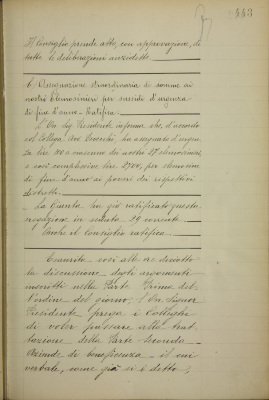 Il Consiglio prende atto, con approvazione, di
tutte le deliberazioni suddette.
6/ Assegnazione straordinaria di somme ai
nostri Elemosinieri per sussidi d'urgenza
di fine d'anno - Ratifica.
L'On. Sig. Presidente informa che, d'accordo
col Collega Sig. , ha assegnato d'urgenza
Lire 100 a ciascuno dei nostri 27 elemosinieri,
e così complessive lire 2700, per elemosine
di fine d'anno ai poveri dei rispettivi
distretti.
La Giunta ha già ratificato questa
erogazione in seduta 29 corrente.
Anche il consiglio ratifica.
Esaurita così alle ore diciotto
la discussione degli argomenti
inscritti nella Parte Prima del-
l'ordine del giorno, l'On. Signor
Presidente prega i Colleghi
di voler passare alla trat-
tazione della Parte Seconda -
Aziende di beneficenza - il cui
verbale, come già si è detto,